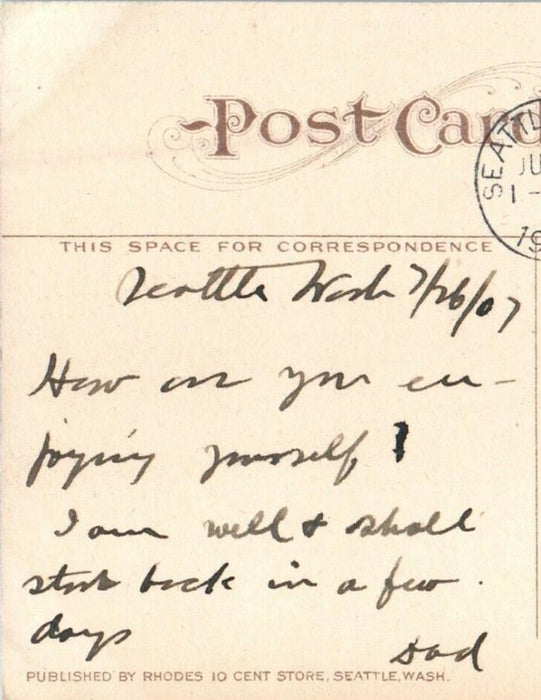 Post Card
SEATTL
JU
1 -
19
THIS SPACE FOR CORRESPONDENCE
Seattle Wash 7/26/07
How are you en-
joying yourself?
I am well & shall
start back in a few
days
Dad
PUBLISHED BY RHODES 10 CENT STORE, SEATTLE, WASH.